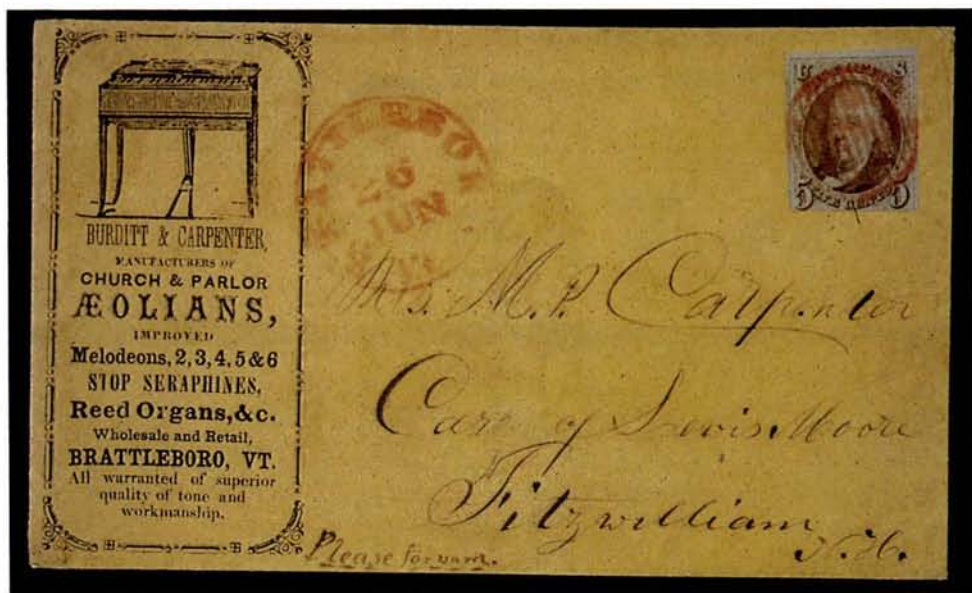 BURDITT & CARPENTER,
MANUFACTURERS OF
CHURCH & PARLOR
ÆOLIANS,
IMPROVED
Melodeons, 2, 3, 4, 5 & 6
STOP SERAPHINES,
Reed Organs, &c.
Wholesale and Retail,
BRATTLEBORO, VT.
All warranted of superior
quality of tone and
workmanship.
26
JUN
U S
5 5
Mrs. M. P. Carpenter
Care of Lewis Moore
Fitzwilliam
N. H.
Please forward.